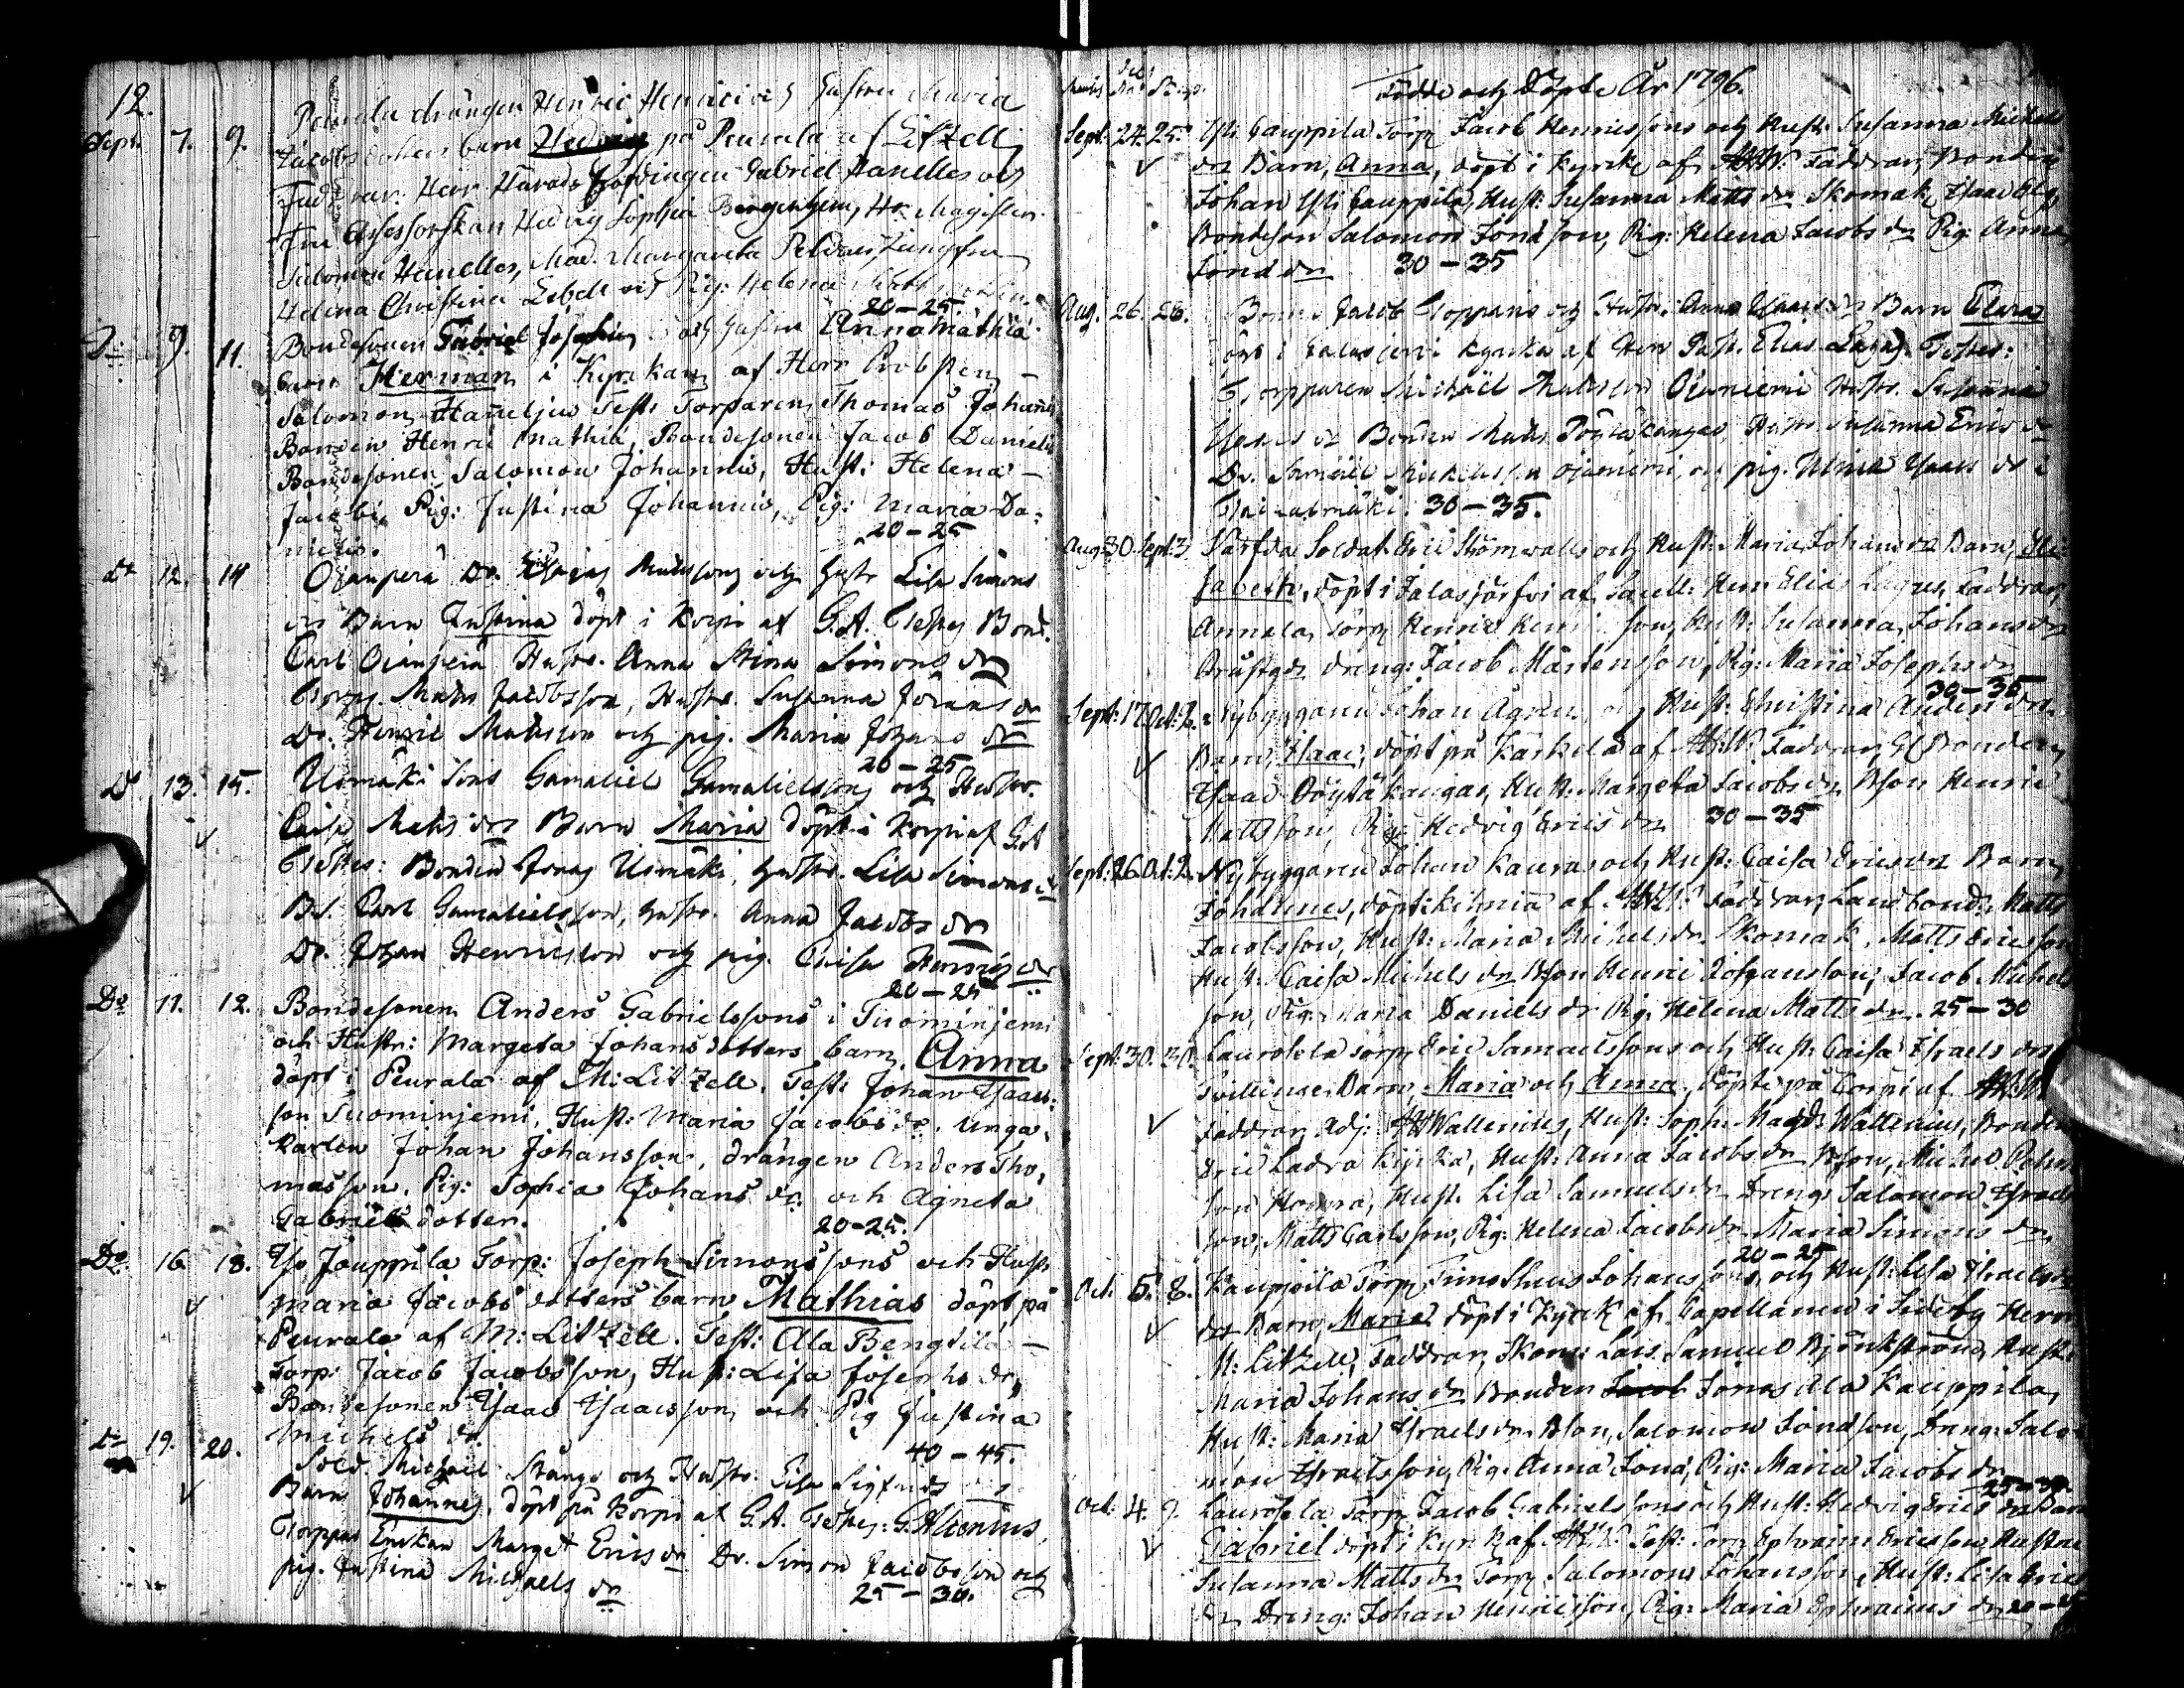 12.
Peurala drängen Henric Henrici och Hustru Maria
Sept. 7. 9. Jacobs dotters barn Hedvig på Peurala af Litzell
Faddrar: Herr Härads Höfdingen Gabriel Hanelles och
Fru Assessorskan Hedvig Sophia Bergenhem, Hr. Magister
Salomon Hanelles, Mad. Margareta Jungfru
Helena Christina och Pig: Helena
20-25.
Do 9. 11. Bondesonen Gabriel och hustru Anna Mathiä
barn Herman i Kyrkan af Herr Probsten
Salomon Hanelius Test: Torparen Thomas Johannis
Bonden Henric Mathiä, Bondesonen Jacob Danielis
Bondesonen Salomon Johannis, Hust: Helena
Jacobi, Pig: Justina Johannis, Pig: Maria Da-
nielis.
20-25
Do 12. 14 Ojanperä Dr. Matsson och Hustr Lisa Simons
dr Barn Justina döpt i Korpi af G.A. Testes Bond.
Carl Ojanperä Hustr. Anna Stina Simons dr
Torpar. Mats Jacobsson, Hustr. Susanna Jörans dr
Dr. Henric Matsson och pig. Maria Johans dr
20-25
Do 13. 15. Uomäki Sons Gamaliel Gamalielssons och Hustr.
Caisa Mats dr Barn Maria döpt i Korpi af G.A
Testes: Bonden Jonas Uomäki, Hustr. Lisa Simons dr
Bs. Carl Gamalielsson, Hustr. Anna Jacobs dr
Dr. Johan Henricsson och pig. Caisa Henrics dr
20-25
Do 11. 12. Bondesonen Anders Gabrielssons i Tuominjemi
och Hustr: Margeta Johansdotters barn Anna
döpt i Peurala af M: Litzell. Test: Johan Isaacs-
son Suominjemi, Hust: Maria Jacobs dr. unga
karlen Johan Johansson, drängen Anders Tho-
masson, Pig: Sophia Johans dr. och Agneta
Gabriels dotter.
20-25.
Do 16 18. Iso Jouppila Torp: Joseph Simonssons och Hustr
Maria Jacobs dotters barn Mathias döpt på
Peurala af M: Litzell. Test: Ala Bengtila
Torp: Jacob Jacobsson, Hust: Lisa Josephs dr,
Bondesonen Isaac Isaacsson, och Pig Justina
Michels dr.
40-45.
Do 19. 20. Sold. Michael Stånge och Hustr. Lisa Sigfreds dr
Barn Johannes, döpt på Korpi af G.A. Testes: G. Alcenius,
Enckan Marget Erics dr Dr. Simon Jacobsson och
pig. Justina Michaels dr
25-30.
Födde och Döpte År 1796.
Sept. 24. 25. Yli Cauppila Torp: Jacob Henricssons och Hust: Susanna Michels
dr Barn, Anna, döpt i kyrk: af AHW. Faddrar, Bonden
Johan Yli Cauppila, Hust: Susanna Matts dr Skomak: Isaac
Bondeson Salomon Jonasson, Pig: Helena Jacobs dr Pig: Anna
Jonæ dr 30-35
Aug. 26. 28. Jacob Toppari och Hustr: Anna Isaacs dr Barn Clara
döpt i Jalasjervi Kyrka af Herr Past. Elias Lag. Testes:
Torpparen Michaël Matsson Ojaniemi Hustr. Susanna
dr Bonden Mats Pöytäkangas, Hustr. Susanna Erics dr
Dr. Samuel Michelsson Ojaniemi, och pig. Ulrica Isaacs dr i
30-35.
Aug: 30. Sept: 3 Värfda Soldat Eric Strömwalls och Hust: Maria Johans dr Barn, Eli-
sabeth, döpt i Jalasjärfvi af Sacell: Herr Elias Lagus, Faddrar,
Annala Torp: Henric Henricsson, Hust: Susanna Johans dr
dreng: Jacob Mårtensson, Pig: Maria Josephs dr
30-35
Sept: 17 Oct: 2. Nybyggaren Johan Ågren, och Hust: Christina Anders dr
Barn, Isaac, döpt på Käskelä af AHW. Faddrar, Bonden
Isaac Pöytäkangas, Hust: Margeta Jacobs dr, Bson Henric
Mattsson, Pig: Hedvig Erics dr 30-35
Sept: 26. Oct: 2. Nybyggaren Johan Kauras och Hust: Caisa Erics dr Barn
Johannes, döpt af AHW. Faddrar, Landbond: Matts
Jacobsson, Hust: Maria Michels dr. Skomak: Matts Ericsson
Hust: Caisa Michels dr Bson Henric Johansson, Jacob Michels-
son, Pig: Maria Daniels dr Pig: Helena Matts dr. 25-30
Sept: 30. 30. Laurosela Torp: Eric Samuelssons och Hust: Caisa Israels dr
Tvillinge Barn, Maria och Anna, döpte på Corpi af AHW.
Faddrar, Adj: AHWallenius, Hust: Soph: Magd: Wallenius, Bonden
Eric Ladva Kyrka, Hust: Anna Jacobs dr Bson, Michel
son Hust: Lisa Samuels dr Dreng: Salomon Israels-
son, Matts Carlsson, Pig: Helena Jacobs dr Maria Simons dr.
20-25
Oct. 5. 8. Kauppila Torp: Timotheus Johanssons, och Hust: Lisa Israels
dr Barn, Maria döpt i Kyrk: af Capellanen i Sideby Herr
M: Litzell, Faddrar, Skom: Samuel Björkstrand, Hust:
Maria Johans dr Bonden Jacob Jonas Ala Kauppila,
Hust: Maria Israels dr. Bson, Salomon Jonasson, Dreng: Salo-
mon Israelsson, Pig: Anna Jonæ, Pig: Maria Jacobs dr
25-30.
Oct. 4. 9. Laurosela Torp: Jacob Gabrielssons och Hust: Hedvig Erics dr Barn
Gabriel döpt i Kyrk af AHW. Test: Torp: Ephraim Ericsson Hustru
Susanna Matts dr Torp: Salomon Johansson, Hust: Lisa Erics
dr Dreng: Johan Henricsson, Pig: Maria Ephraims dr 20-25